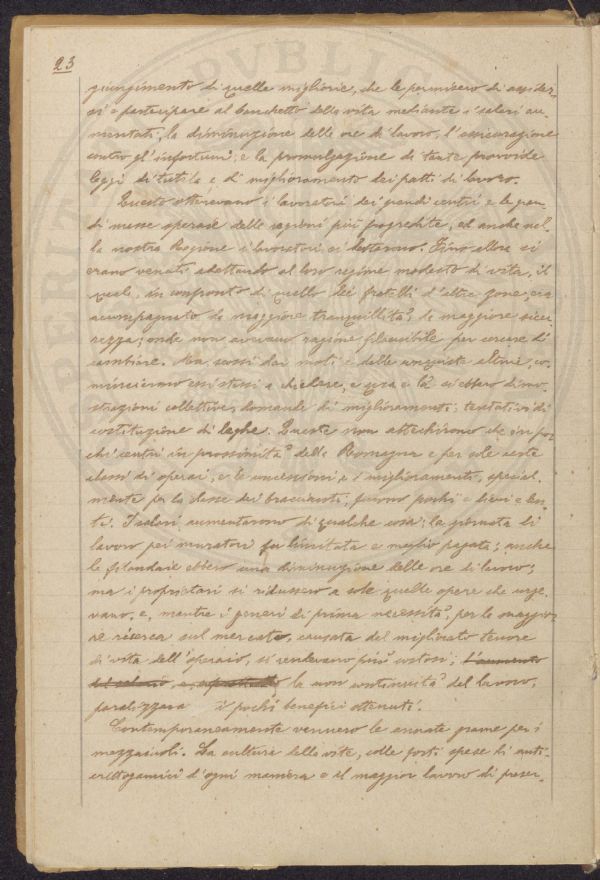 23
giungimento di quelle migliorie, che le permisero di assider-
si e partecipare al banchetto della vita mediante i salari au-
mentati, la diminuzione delle ore di lavoro, l'assicurazione
contro gl'infortuni; e la promulgazione di tante provvide
leggi di tutela e di miglioramento dei patti di lavoro.
Questo ottenevano i lavoratori dei grandi centri e le gran-
di masse operaie delle regioni più progredite, ed anche nel-
la nostra Regione i lavoratori si destarono. Fino allora si
erano venuti adattando al loro regime modesto di vita, il
quale, in confronto di quello dei fratelli d'altre zone, era
accompagnato da maggiore tranquillità, da maggiore sicu-
rezza; onde non avevano ragione plausibile per cercare di
cambiare. Ma scossi dai moti e dalle conquiste altrui, co-
minciarono essi stessi a chiedere, e qua e là si ebbero dimo-
strazioni collettive, domande di miglioramenti; tentativi di
costituzione di leghe. Queste non attecchirono che in po-
chi centri in prossimità della Romagna e per sole certe
classi di operai, e le concessioni, e i miglioramenti, special-
mente per la classe dei braccianti, furono pochi e lievi e len-
ti. I salari aumentarono di qualche cosa; la giornata di
lavoro pei muratori fu limitata e meglio pagata; anche
le filandaie ebbero una diminuzione delle ore di lavoro;
ma i proprietari si ridussero a sole quelle opere che urge-
vano, e, mentre i generi di prima necessità, per la maggio-
re ricerca sul mercato, causata dal migliorato tenore
di vita dell'operaio, si rendevano più costosi, l'aumento
del salario, e, la non continuità del lavoro,
paralizzava i pochi benefici ottenuti.
Contemporaneamente vennero le annate grame per i
mezzaiuoli. La cultura della vite, colle forti spese di anti-
crittogamici d'ogni maniera e il maggior lavoro di preser-